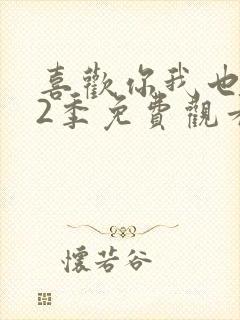 喜歡你我也
2季免費觀
懷若谷